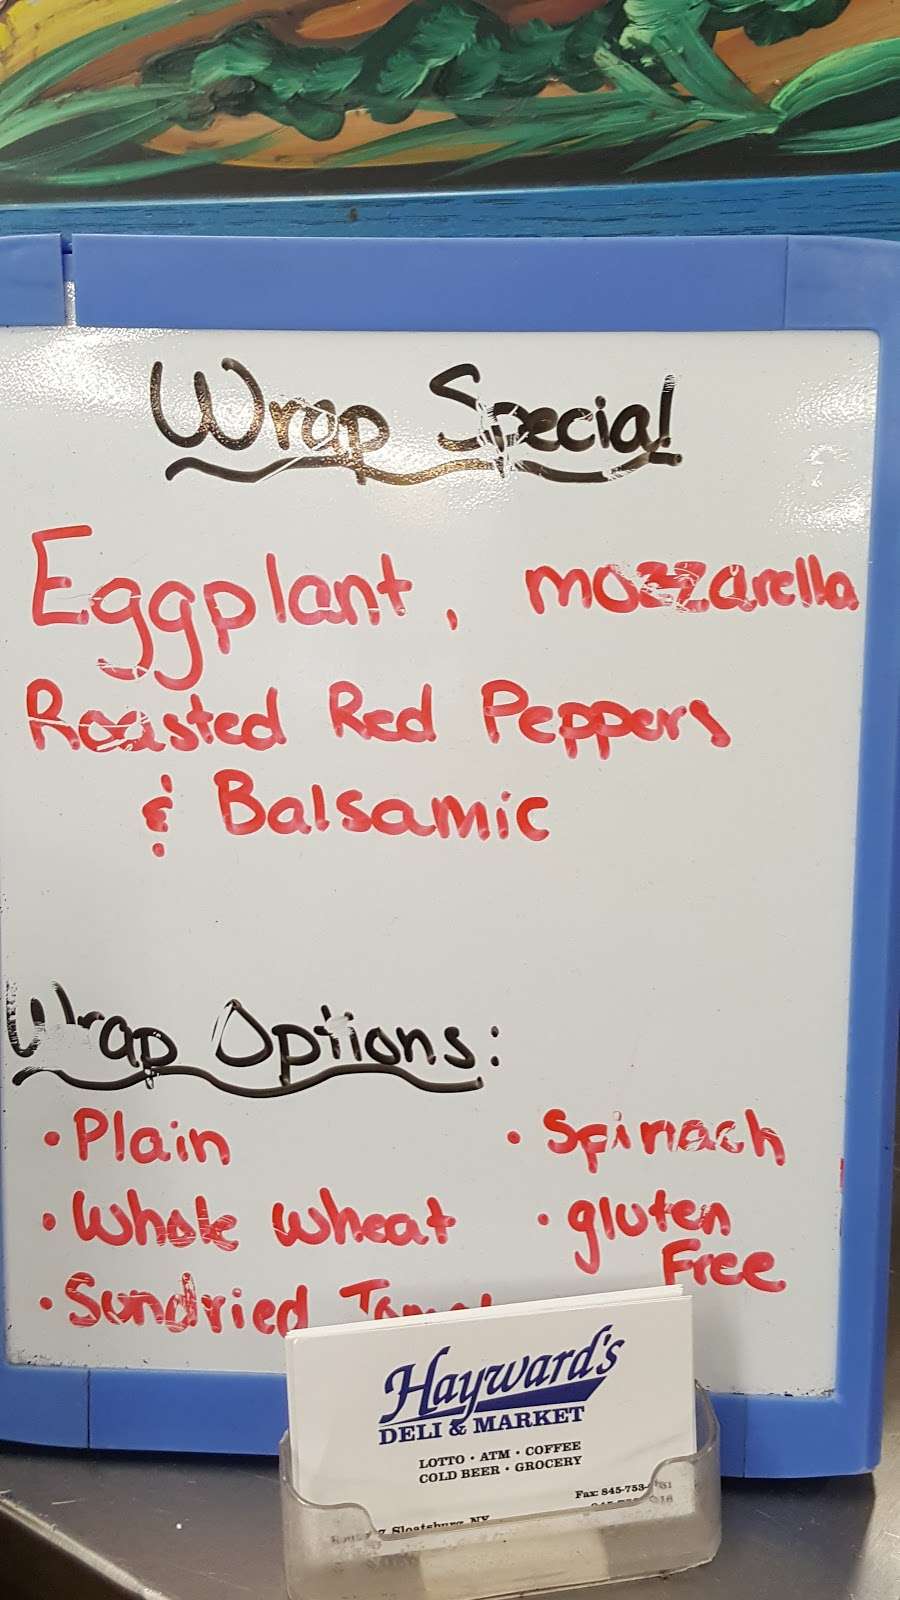 Wrap Special
Eggplant, mozzarella
Roasted Red Peppers
& Balsamic
Wrap Options:
• Plain
• Spinach
• Whole Wheat
• gluten
Free
• Sundried
Hayward's
DELI & MARKET
LOTTO • ATM • COFFEE
COLD BEER • GROCERY
Fax: 845-753-
Sloatsburg, NY